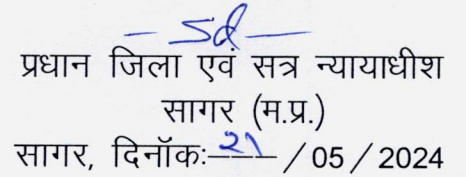 — Sd —
प्रधान जिला एवं सत्र न्यायाधीश
सागर (म.प्र.)
सागर, दिनॉक:- 21 / 05 / 2024